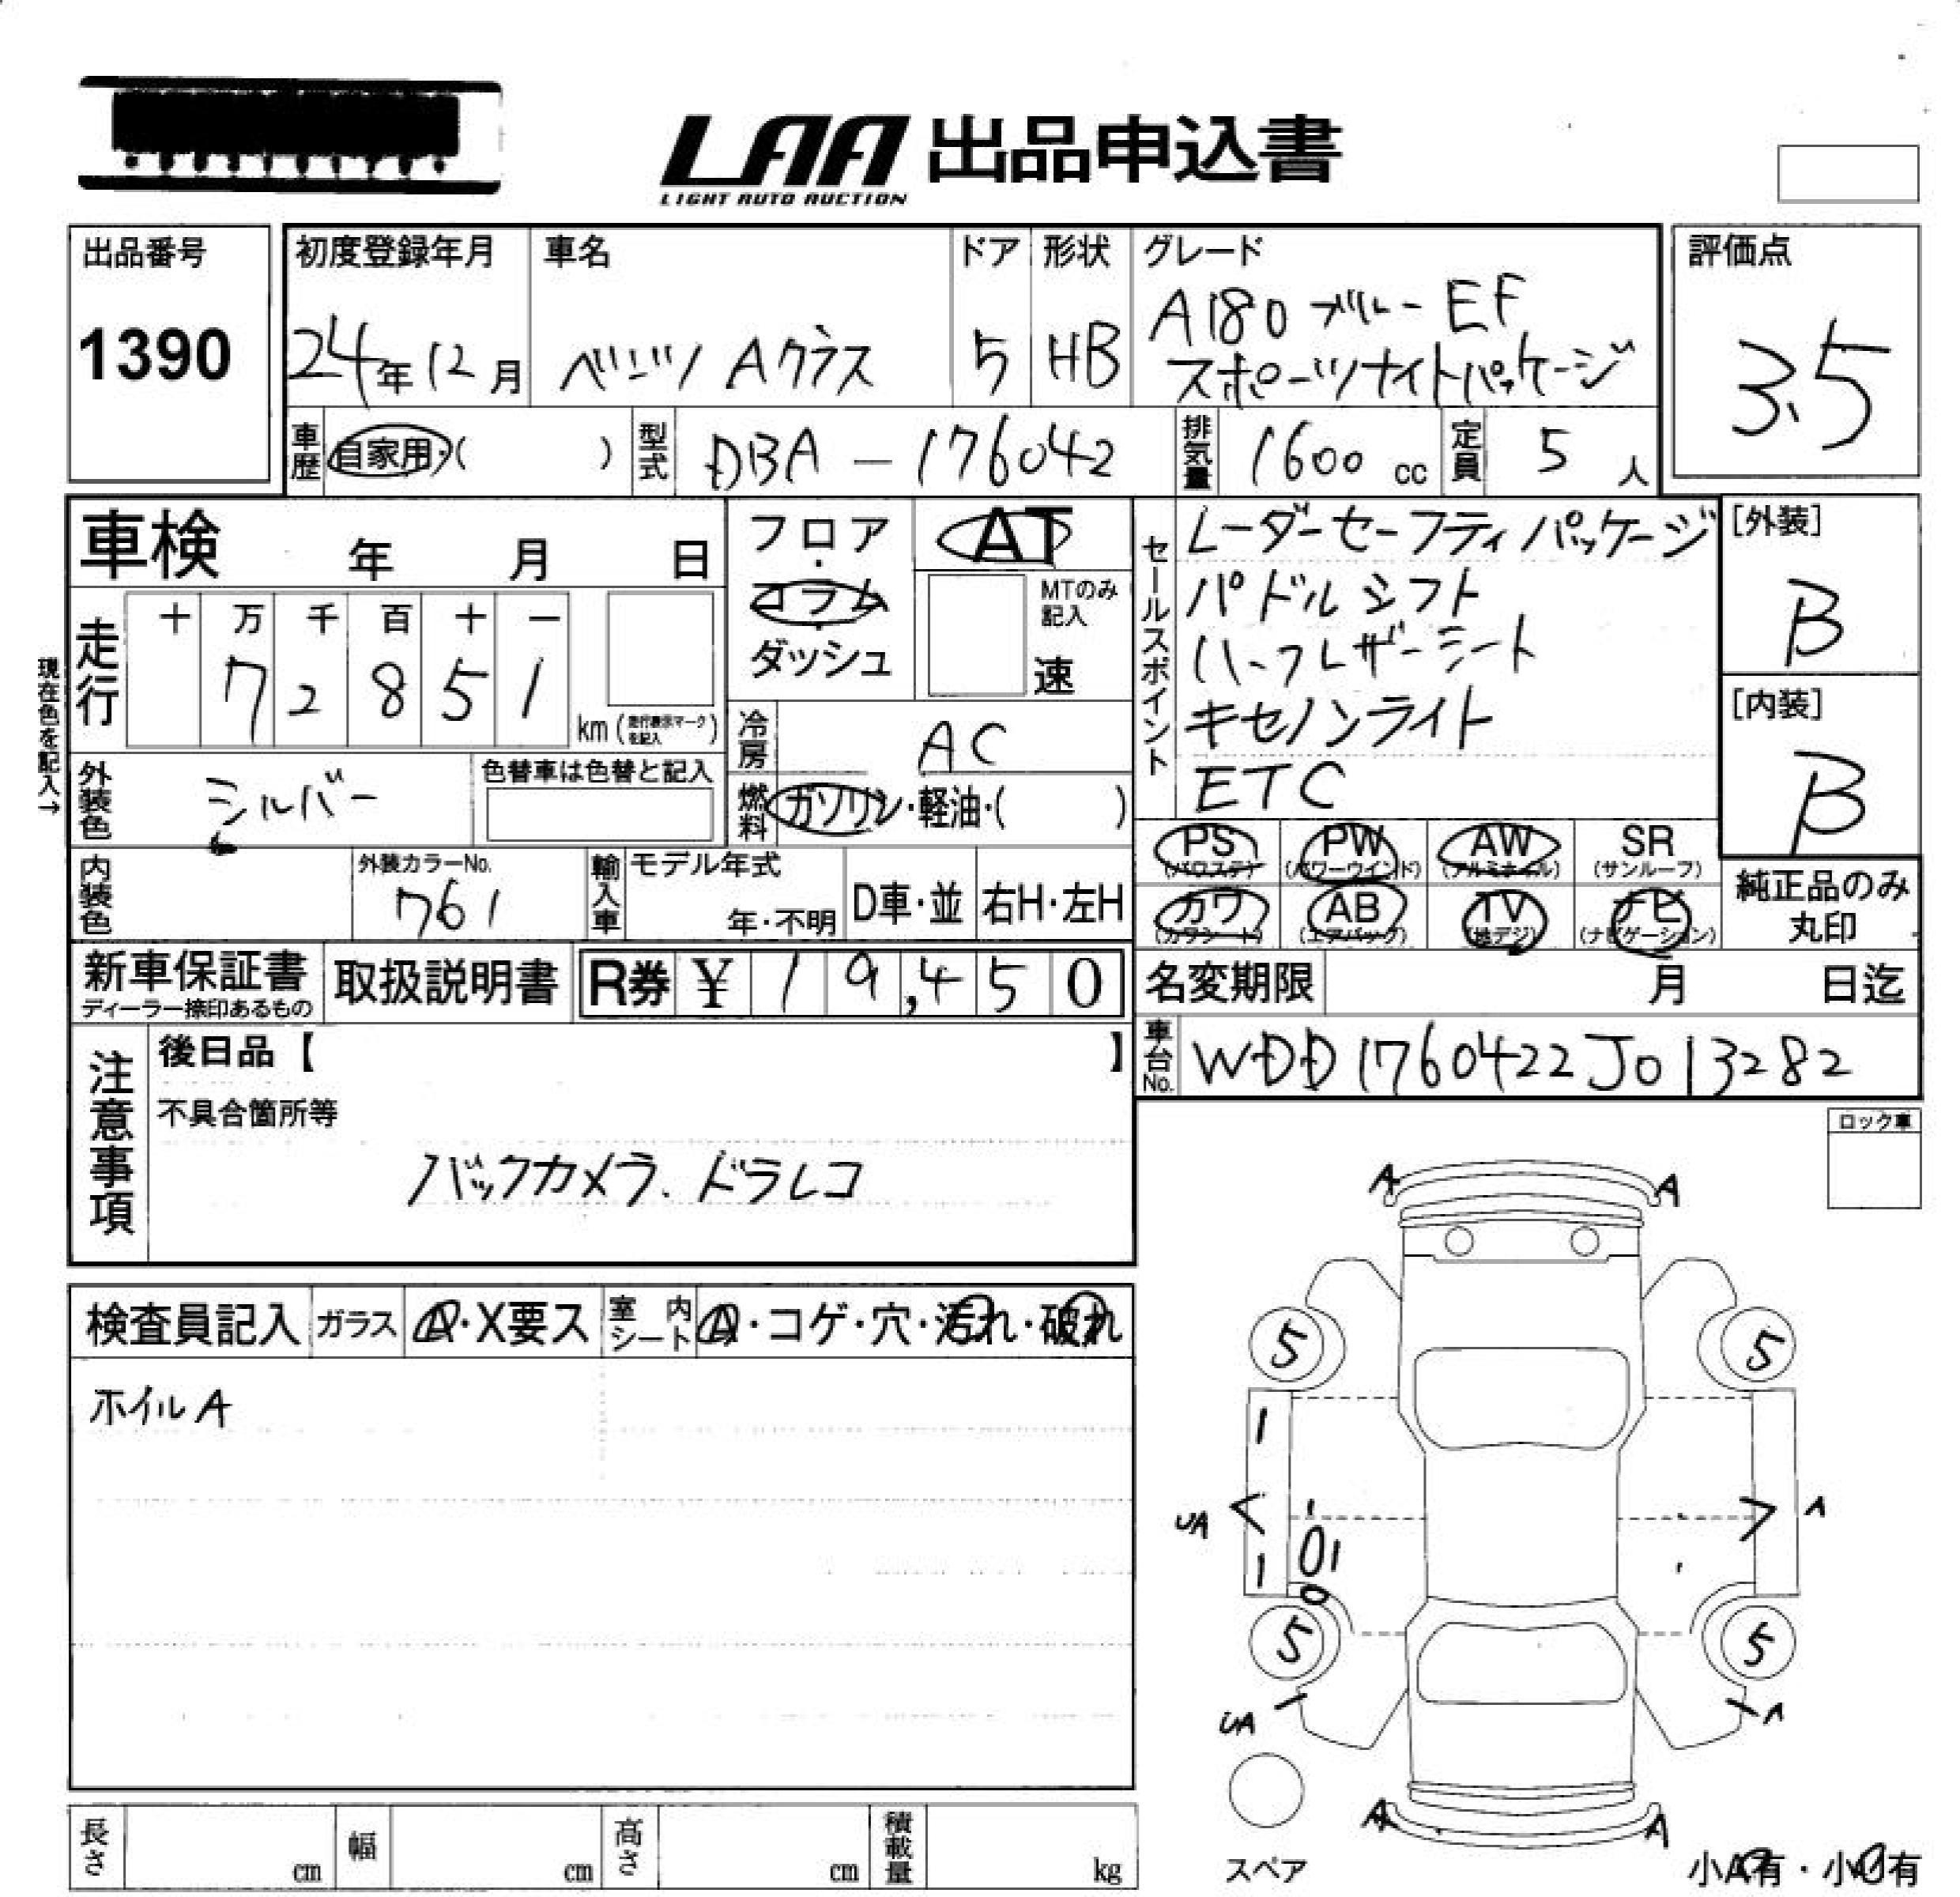 LAA 出品申込書
LIGHT AUTO AUCTION
出品番号
1390
初度登録年月
24年12月
車名
ベンツ Aクラス
ドア
5
形状
HB
グレード
A180 ブルーEF
スポーツナイトパッケージ
評価点
3.5
車歴
自家用・( )
型式
DBA-176042
排気量
1600 cc
定員
5 人
車検 年 月 日
フロア・コラム・ダッシュ
AT
MTのみ記入
速
現在色を記入→
走行
十 万 千 百 十 一
7 2 8 5 1
km (走行表示マークを記入)
冷房
AC
外装色
シルバー
色替車は色替と記入
燃料
ガソリン・軽油・( )
セールスポイント
レーダーセーフティパッケージ
パドルシフト
ハーフレザーシート
キセノンライト
ETC
[外装]
B
[内装]
B
PS (パワステ)
PW (パワーウインド)
AW (アルミホイル)
SR (サンルーフ)
カワ (カワシート)
AB (エアバッグ)
TV (地デジ)
ナビ (ナビゲーション)
純正品のみ
丸印
内装色
外装カラーNo.
761
輸入車
モデル年式
年・不明
D車・並
右H・左H
新車保証書
ディーラー捺印あるもの
取扱説明書
R券 ¥ 19,450
名変期限 月 日迄
車台No.
WDD1760422J013282
注意事項
後日品【 】
不具合箇所等
バックカメラ、ドラレコ
ロック車
検査員記入
ガラス
A・X要ス
室内シート
A・コゲ・穴・汚れ・破れ
ホイルA
A A
5 5
UA
A
5 5
UA
A
A A
スペア
長さ cm
幅 cm
高さ cm
積載量 kg
小A有・小U有